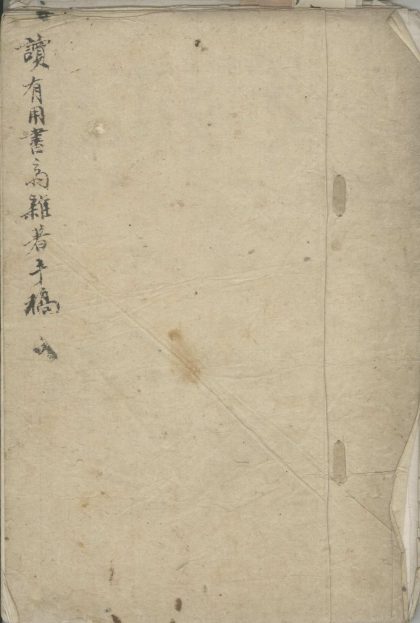 讀有用書斋雜著手稿